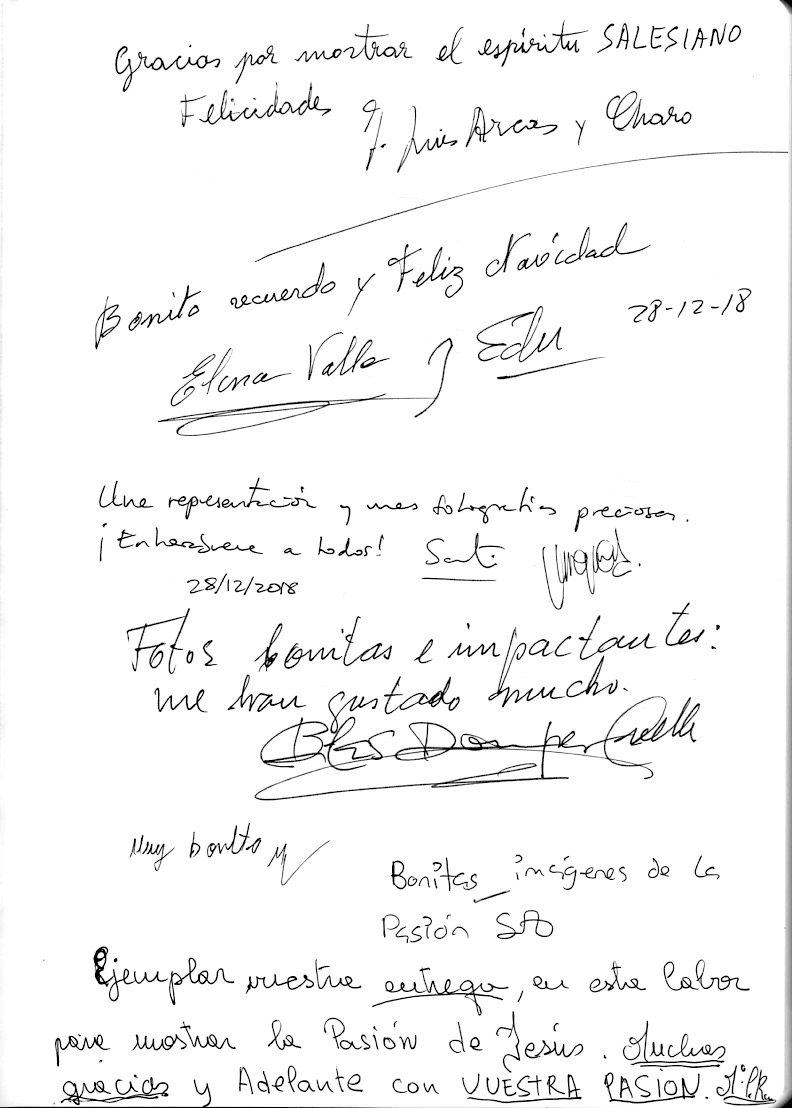 Gracias por mostrar el espíritu SALESIANO
Felicidades J. Luis Arcas y Charo
Bonito recuerdo y Feliz Navidad
28-12-18
Elena Valle y Edu
Una representación y unas fotografías preciosas.
¡Enhorabuena a todos! Santi
28/12/2018
Fotos bonitas e impactantes:
me han gustado mucho.
Blas Domper
Muy bonito
Bonitas imágenes de la
Pasión
Ejemplar vuestra entrega, en esta labor
para mostrar la Pasión de Jesús. Muchas
gracias y Adelante con VUESTRA PASIÓN.